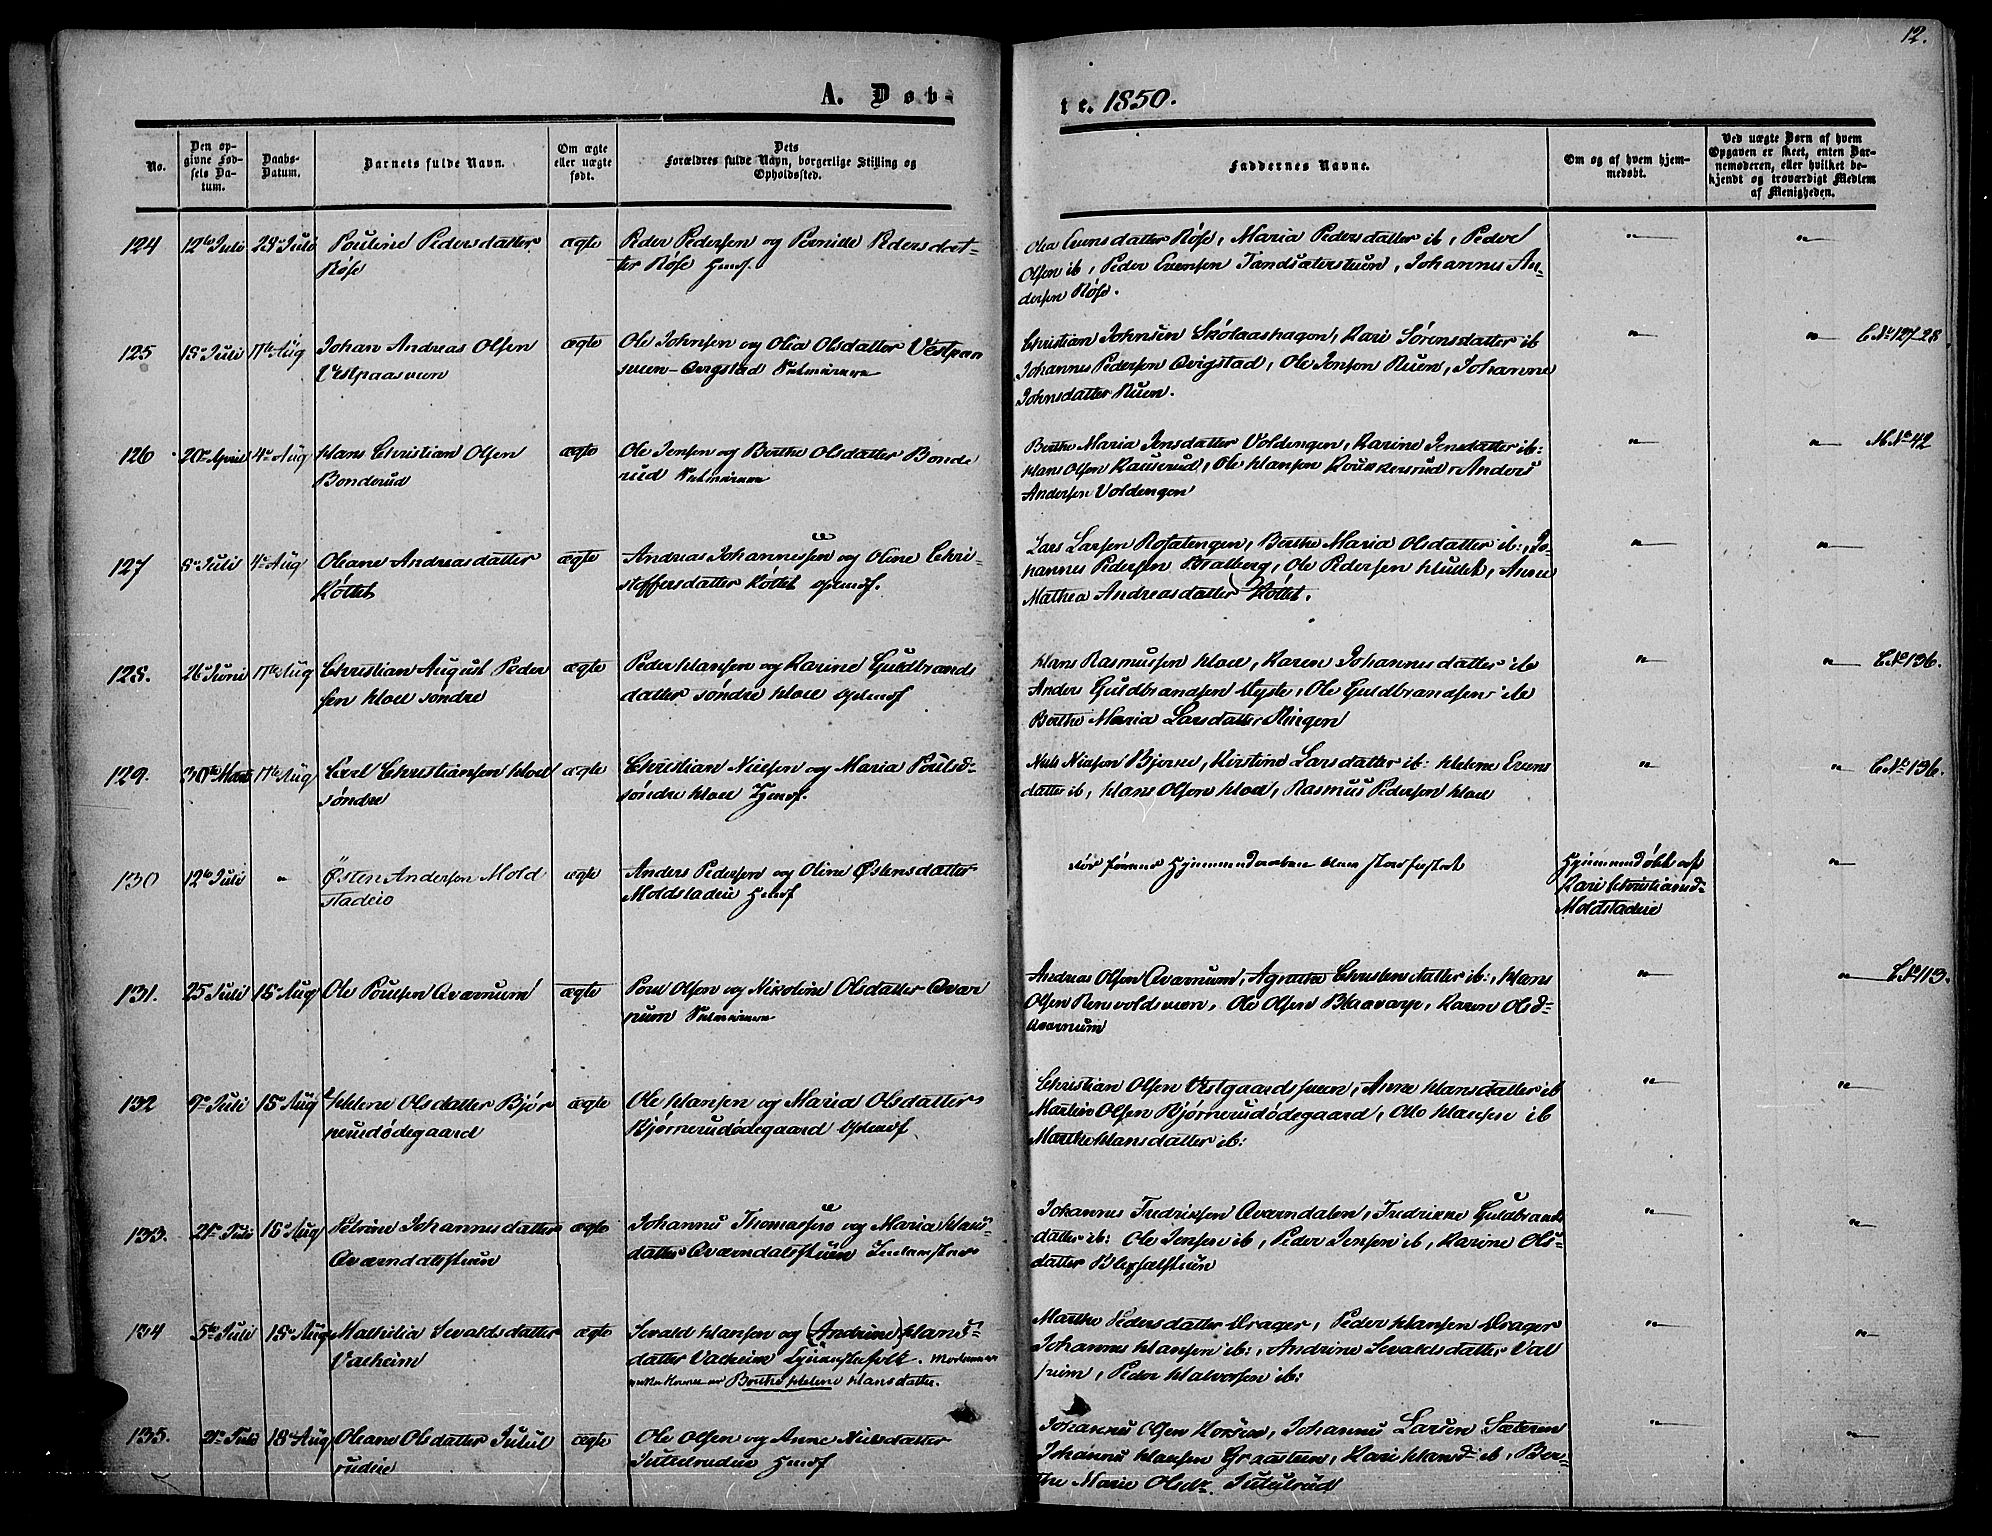 12.
A. Døb-
te. 1850.
No.
Den op-
givne Fød-
sels Da-
tum.
Daabs-
Datum.
Barnets fulde Navn.
Om ægte
eller uægte
født.
Dets
Forældres fulde Navn, borgerlige Stilling og
Opholdssted.
Faddernes Navne.
Om og af hvem hjem-
medøbt.
Ved uægte Børn af hvem
Opgaven er skeet, enten Bar-
nemoderen, eller hvilket be-
kjendt og troværdigt Medlem
af Menigheden.
124 12te Juli 28 Juli Pouline Pedersdatter
Røse
ægte Peder Pedersen og Pernille Pedersdat-
ter Røse
Olia Evensdatter Røse, Maria Pedersdatter ib, Peder
Olsen ib, Peder Evensen Tandsæterstuen, Johannes An-
dersen Røse.
125 18 Juli 11te Aug Johan Andreas Olsen
Vestpaasveen
ægte Ole Johnsen og Olia Olsdatter Vestpaa
sveen-Qvigstad
Christian Johnsen Skolaashagen, Kari Sørensdatter ib
Johannes Pedersen Qvigstad, Ole Jensen Ruen, Johanne
Johnsdatter Ruen.
C No 127-28
126 20 April 4 Aug Hans Christian Olsen
Bonderud
ægte Ole Jensen og Berthe Olsdatter Bonde
rud
Berthe Maria Jensdatter Voldengen, Karine Jensdatter ib:
Hans Olsen Kauserud, Ole Hansen Anders
Andersen Voldengen
M No 42
127 8 Juli 4 Aug Oleane Andreasdatter
Køltet
ægte Andreas Johannessen og Oline Chri-
stoffersdatter Køltet
Lars Larsen Rosatengen, Berthe Maria Olsdatter ib:, Jo-
hannes Pedersen Bratberg, Ole Pedersen Anne
Mathea Andreasdatter Køltet.
128. 26 Juni 11te Aug Christian August Peder
sen Hoel søndre
ægte Peder Hansen og Karine Guldbrands
datter søndre Hoel
Hans Rasmussen Hoel, Karen Johannesdatter ib
Anders Guldbrandsen Ulyste, Ole Guldbrandsen ib
Berthe Maria Larsdatter Ringen
C No 136.
129. 30te Marts 11te Aug Carl Christiansen Hoel
søndre
ægte Christian Nielsen og Maria Poulsd-
søndre Hoel
Niels Nielsen Bjerke, Kirstine Larsdatter ib: Helene Evens
datter ib, Hans Olsen Hoel, Rasmus Pedersen Hoel
C No 136.
130 12te Juli " Østen Andersen Mold
stadeie
ægte Anders Pedersen og Oline Østensdatter
Moldstadeie
Hjemmedøbt af
Kari Christiansd-
Moldstadeie
131. 25 Juli 18 Aug Ole Poulsen Qværnum
ægte Poul Olsen og Nikoline Olsdatter Qvær
num
Andreas Olsen Qværnum, Agnethe Christensdatter ib:, Hans
Olsen Ole Olsen Karen Olsd-
Qværnum
C No 113.
132 9 Juli 18 Aug Helene Olsdatter Bjør
nerudødegaard
ægte Ole Hansen og Maria Olsdatter
Bjørnerudødegaard
Christian Olsen Vestgaardstuen, Anne Hansdatter ib
Martine Olsen Bjørnerudødegaard, Otto Hansen ib
Marthe Hansdatter ib:
133. 21 Juli 18 Aug Petrine Johannesdatter
Qværndalstuen
ægte Johannes Thomassen og Maria Hans-
datter Qværndalstuen
Johannes Fredriksen Qværndalen, Fredrikke Guldbrands
datter ib: Ole Jensen ib, Peder Jensen ib, Karine Ols-
datter
134 5te Juli 18 Aug Mathilia Sevaldsdatter
Valheim
ægte Sevald Hansen og (Andrine) Hans-
datter Valheim
Berthe Helene Hansdatter.
Marthe Pedersdatter Drager, Peder Hansen Drager
Johannes Hansen ib:, Andrine Sevaldsdatter Val
heim, Peder Halvorsen ib:
135. 21 Juli 18 Aug Oleane Olsdatter Julul
rudeie
ægte Ole Olsen og Anne Nielsdatter
Jululrudeie
Johannes Olsen Johannes Larsen Sæteren
Johannes Hansen Kari Hansd ib, Ber-
the Marie Olsdr. Jululrud